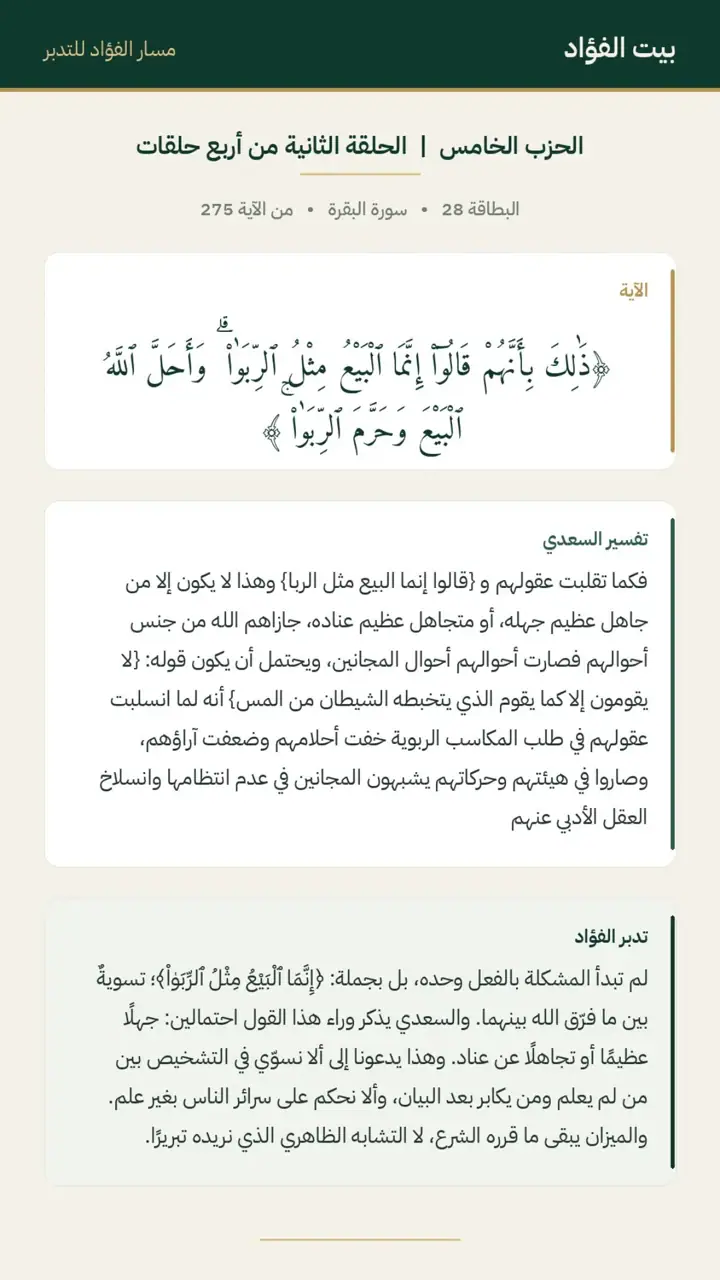 بيت الفؤاد
مسار الفؤاد للتدبر
الحزب الخامس | الحلقة الثانية من أربع حلقات
البطاقة 28 • سورة البقرة • من الآية 275
الآية
﴿ذَٰلِكَ بِأَنَّهُمْ قَالُوٓا۟ إِنَّمَا ٱلْبَيْعُ مِثْلُ ٱلرِّبَوٰا۟ ۗ وَأَحَلَّ ٱللَّهُ
ٱلْبَيْعَ وَحَرَّمَ ٱلرِّبَوٰا۟ ۚ﴾
تفسير السعدي
فكما تقلبت عقولهم و {قالوا إنما البيع مثل الربا} وهذا لا يكون إلا من
جاهل عظيم جهله، أو متجاهل عظيم عناده، جازاهم الله من جنس
أحوالهم فصارت أحوالهم أحوال المجانين، ويحتمل أن يكون قوله: {لا
يقومون إلا كما يقوم الذي يتخبطه الشيطان من المس} أنه لما انسلبت
عقولهم في طلب المكاسب الربوية خفت أحلامهم وضعفت آراؤهم،
وصاروا في هيئتهم وحركاتهم يشبهون المجانين في عدم انتظامها وانسلاخ
العقل الأدبي عنهم
تدبر الفؤاد
لم تبدأ المشكلة بالفعل وحده، بل بجملة: ﴿إِنَّمَا ٱلْبَيْعُ مِثْلُ ٱلرِّبَوٰا۟﴾؛ تسويةٌ
بين ما فرّق الله بينهما. والسعدي يذكر وراء هذا القول احتمالين: جهلًا
عظيمًا أو تجاهلًا عن عناد. وهذا يدعونا إلى ألا نسوّي في التشخيص بين
من لم يعلم ومن يكابر بعد البيان، وألا نحكم على سرائر الناس بغير علم.
والميزان يبقى ما قرره الشرع، لا التشابه الظاهري الذي نريده تبريرًا.